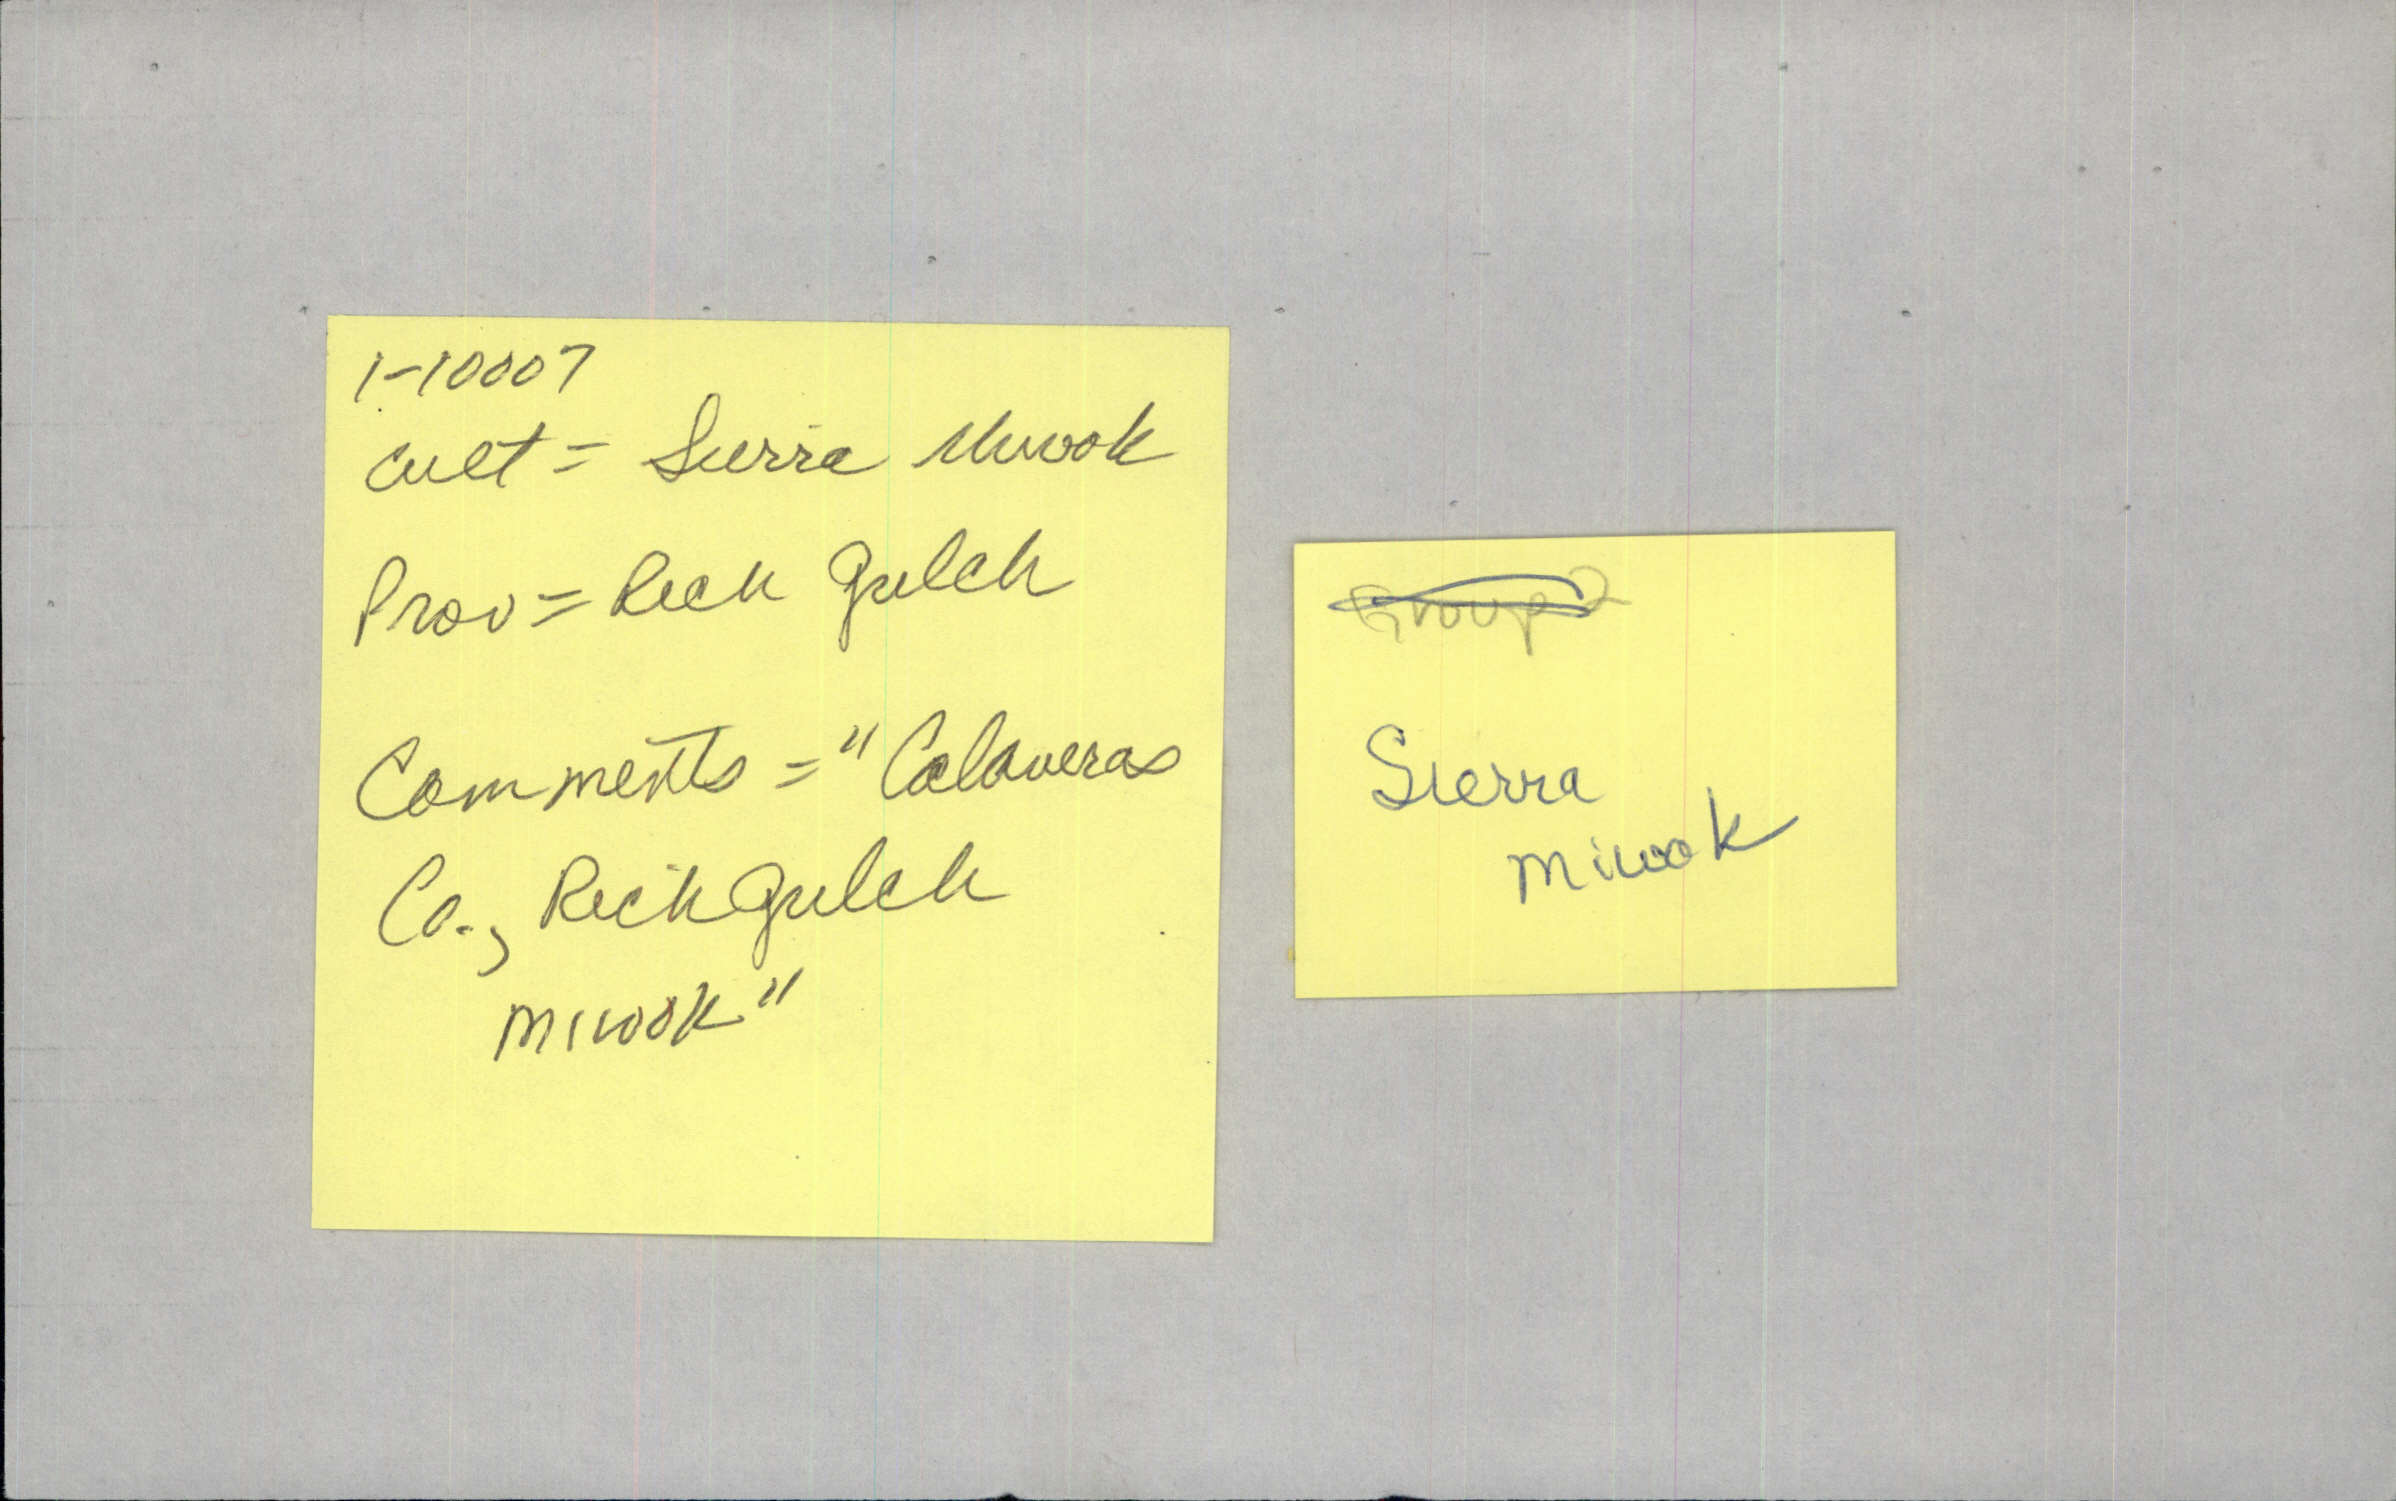 1-10007
cult = Sierra Miwok
Prov = Rich Gulch
Comments = "Calaveras
Co., Rich Gulch
Miwok"
Group?
Sierra
Miwok